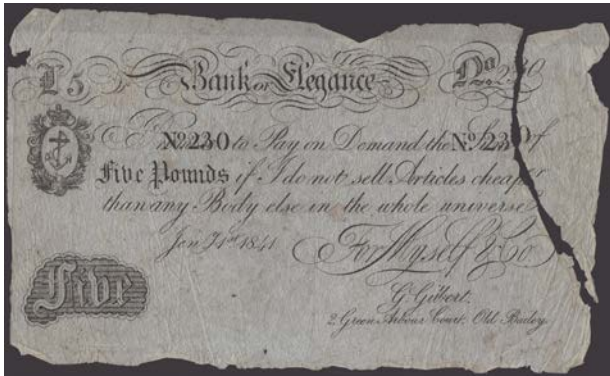 £5 Bank of Elegance No 230
I Promise to Pay on Demand the Sum of
No. 230 No. 230
Five Pounds if I do not sell Articles cheaper
than any Body else in the whole universe
Jany 1st 1841. For Myself & Co
G. Gibert.
2 Green Arbour Court. Old Bailey.
Five